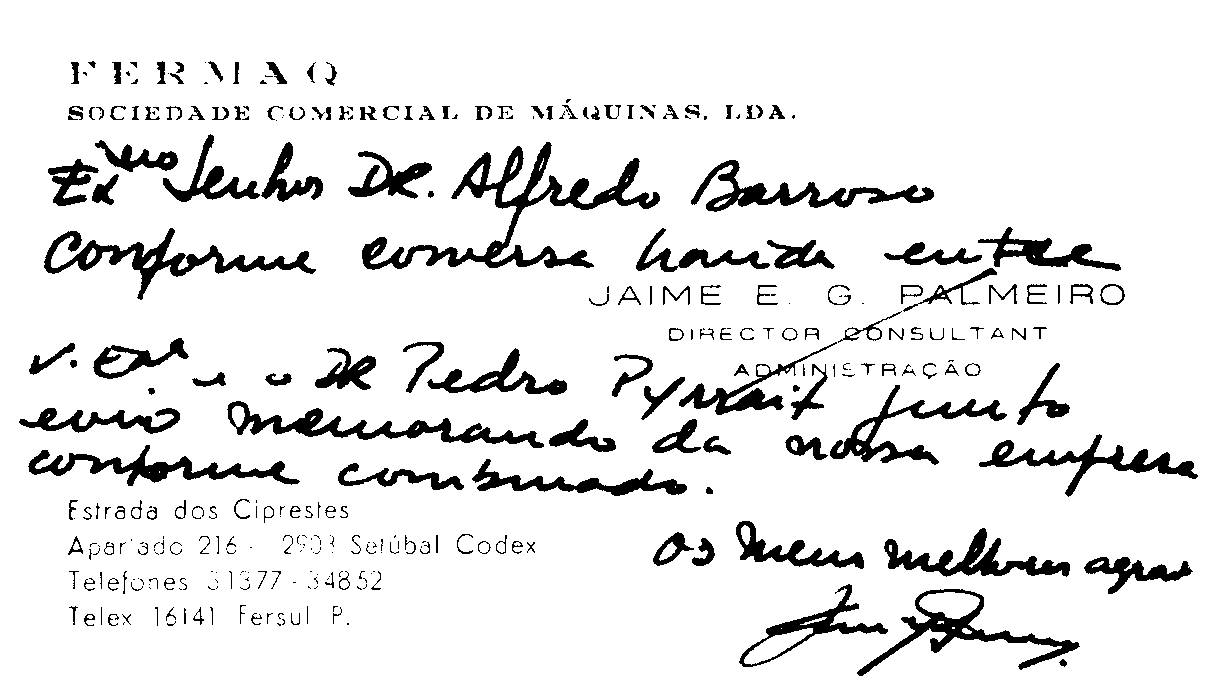 FERMAQ
SOCIEDADE COMERCIAL DE MÁQUINAS, LDA.
Exmo Senhor DR. Alfredo Barroso
Conforme conversa havida entre
JAIME E. G. PALMEIRO
DIRECTOR CONSULTANT
ADMINISTRAÇÃO
V. Exa e o DR Pedro Pyrrait junto
envio memorando da nossa empresa
conforme combinado.
Estrada dos Ciprestes
Apartado 216 - 2903 Setúbal Codex
Telefones 31377 - 34852
Telex 16141 Fersul P.
Os meus melhores